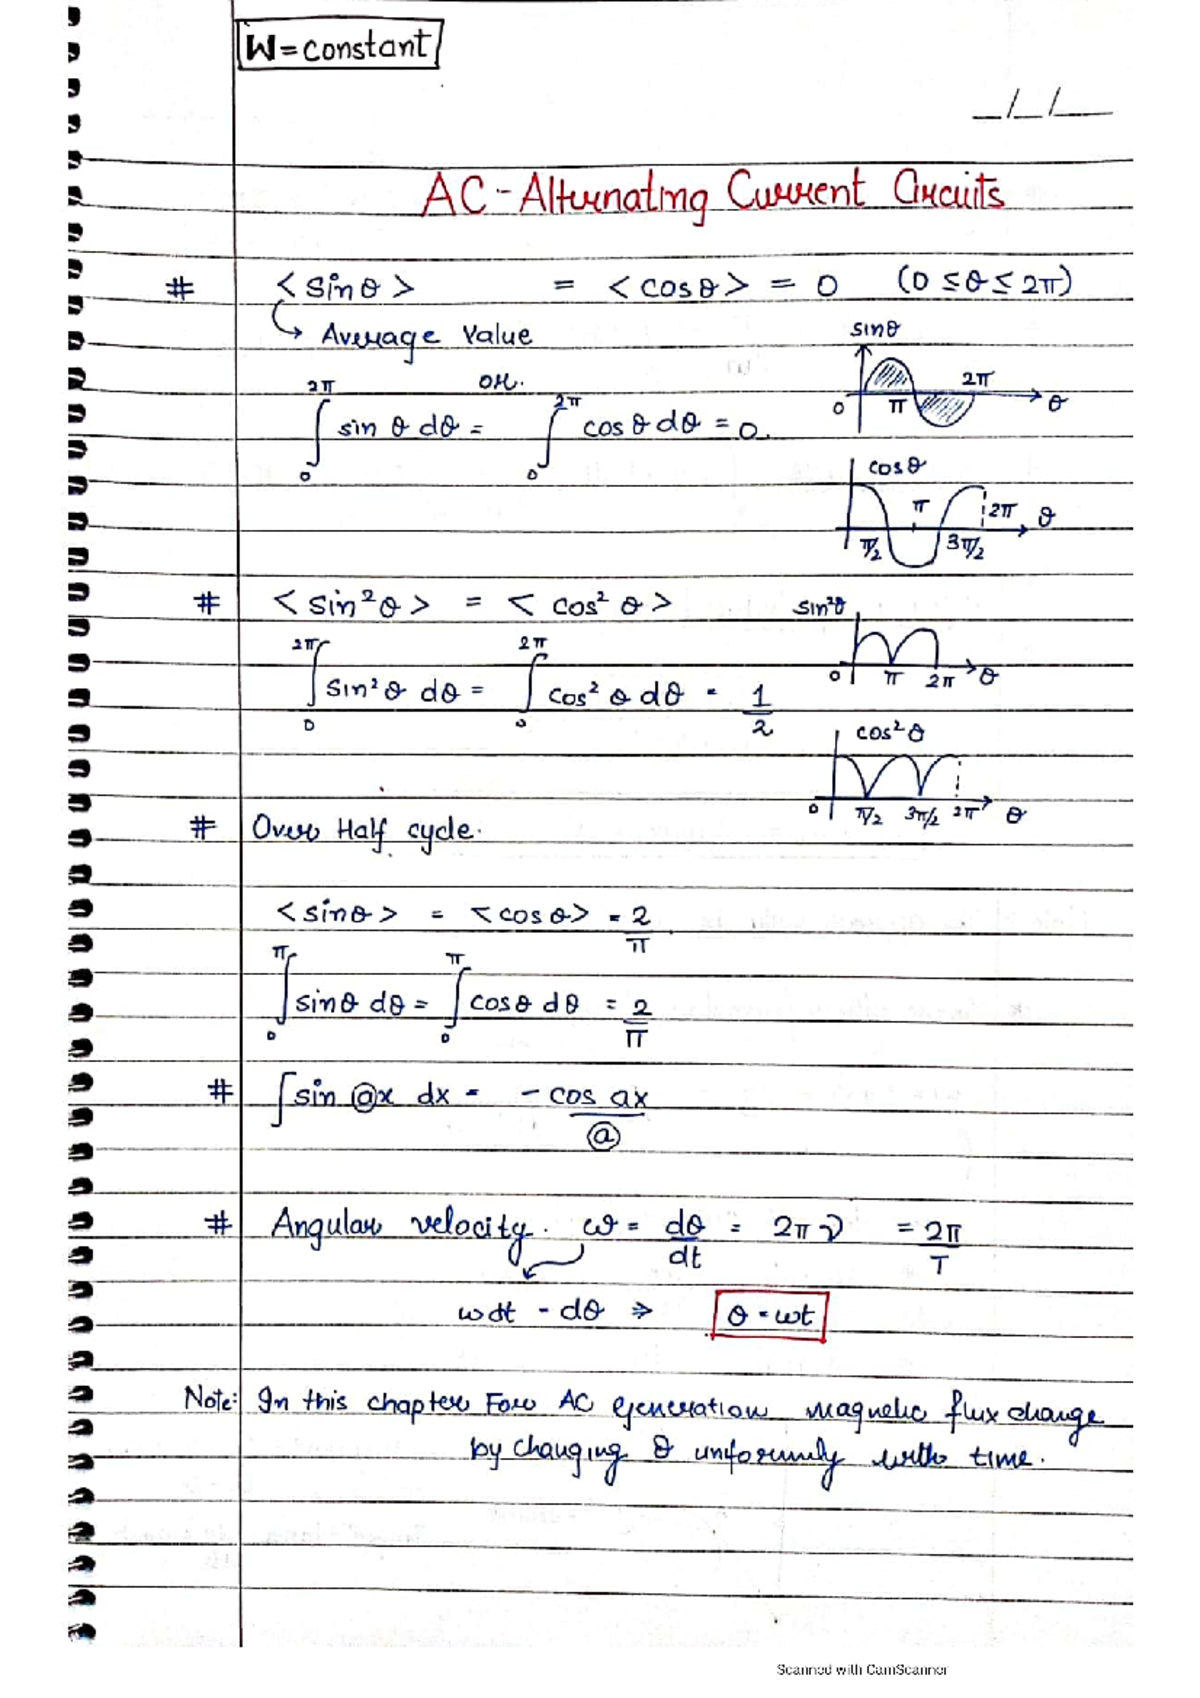 W = constant
_/_/__
AC - Alternating Current Circuits
# < sin θ > = < cos θ > = 0 (0 ≤ θ ≤ 2π)
↳ Average Value
or.
∫₀^2π sin θ dθ = ∫₀^2π cos θ dθ = 0.
sinθ
0 π 2π θ
cosθ
π/2 π 3π/2 2π θ
# < sin² θ > = < cos² θ >
∫₀^2π sin² θ dθ = ∫₀^2π cos² θ dθ = 1/2
sin²θ
0 π 2π θ
cos²θ
0 π/2 3π/2 2π θ
# Over Half cycle.
< sinθ > = < cos θ > = 2/π.
∫₀^π sinθ dθ = ∫₀^π cosθ dθ = 2/π
# ∫ sin ⓐx dx = - cos ax/ⓐ
# Angular velocity. ω = dθ/dt = 2πν = 2π/T
ωdt = dθ ⇒ θ = ωt
Note: In this chapter For AC generation magnetic flux change
by changing θ uniformly with time.
Scanned with CamScanner